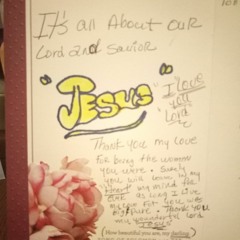 It's all About our
Lord and Savior
"Jesus"
I love
you
Lord
Thank you my love
for being the woman
you were. Surely
you will live in my
heart my mind the
as long I live
my love for you was
pure. Thank you
my wonderful Lord
Jesus
How beautiful you are, my darling,